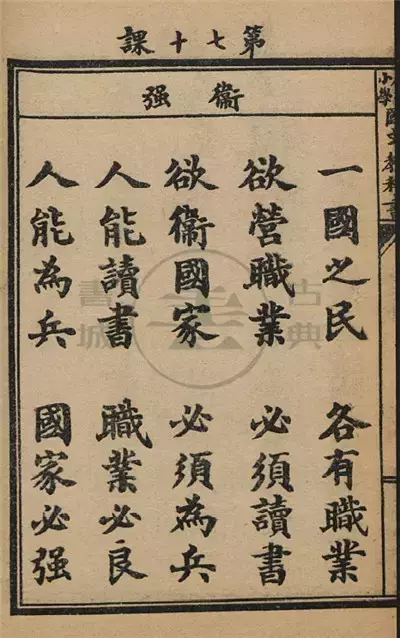 第七十課
小學國文教科書
衛强
一國之民　各有職業
欲營職業　必須讀書
欲衛國家　必須為兵
人能讀書　職業必良
人能為兵　國家必强
古典書城